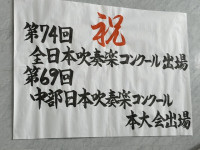 祝
第74回
全日本吹奏楽コンクール出場
第69回
中部日本吹奏楽コンクール
本大会出場